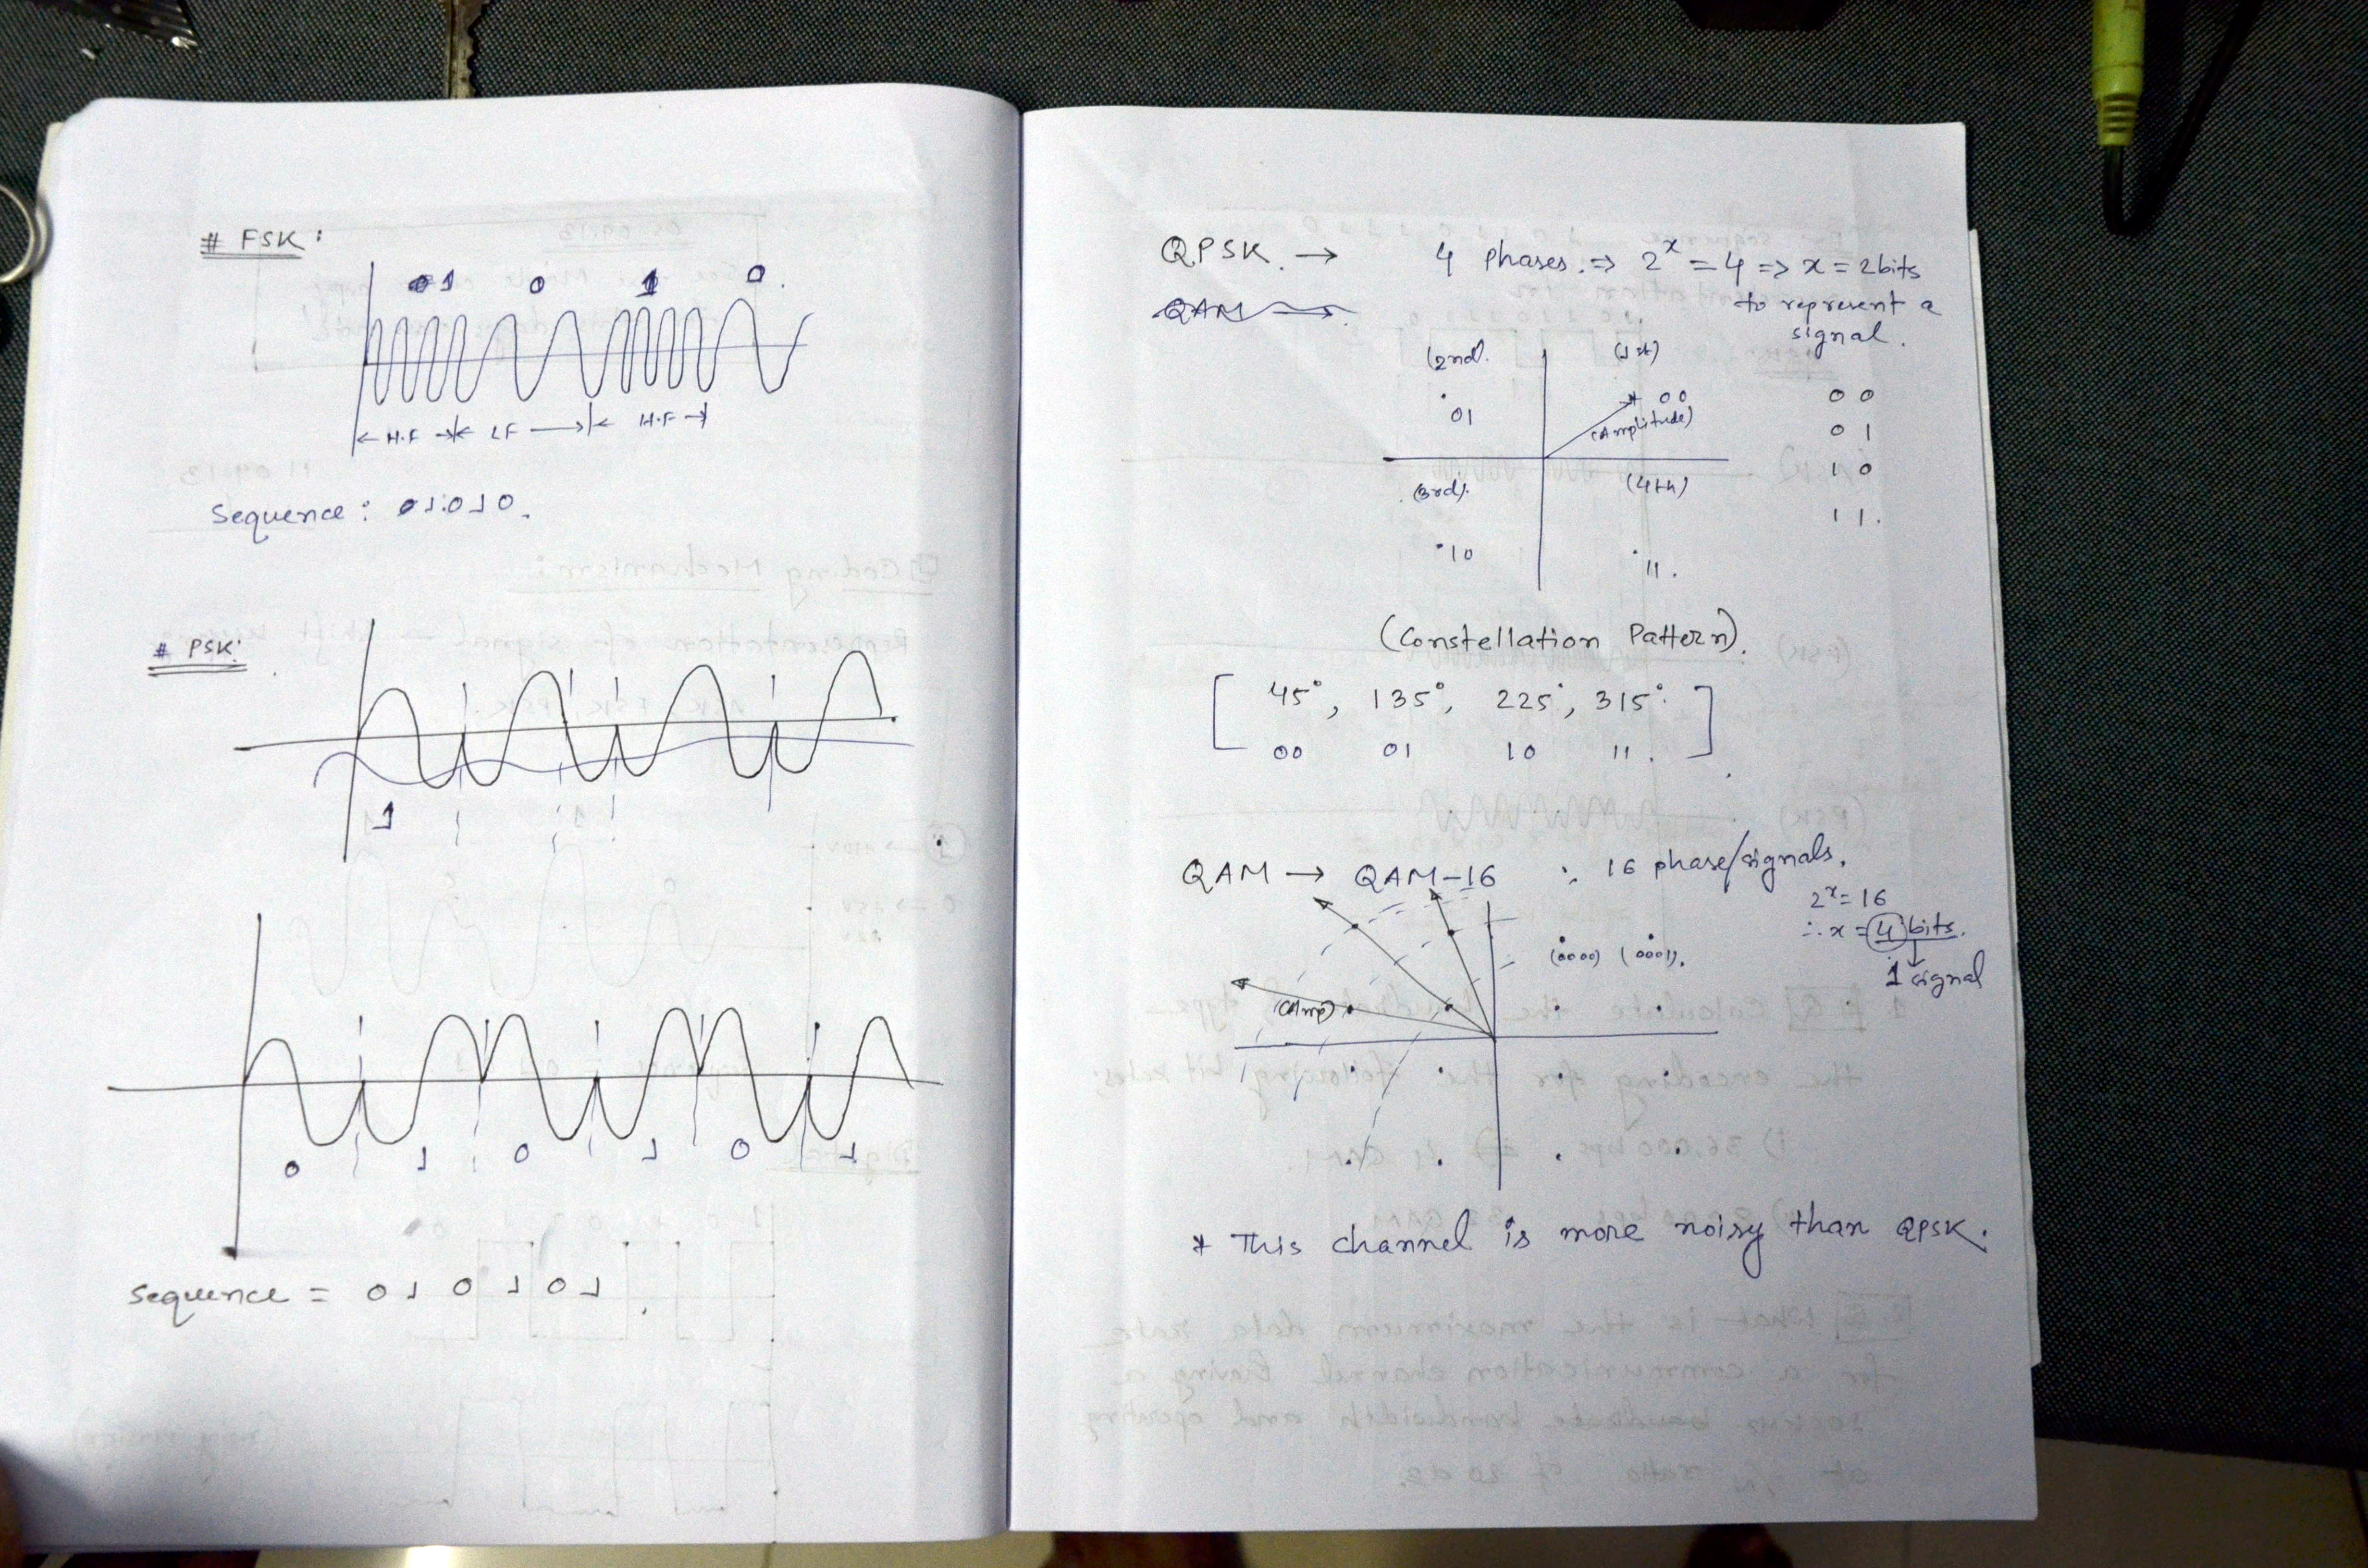 # FSK:
1 0 1 0.
H.F LF H.F
Sequence: 1010.
# PSK:
1
0 1 0 1 0 1
Sequence = 0 1 0 1 0 1.
QPSK. → 4 phases. ⇒ 2^x = 4 ⇒ x = 2 bits
to represent a
signal.
QAM →
(2nd). (1st)
01 00
(Amplitude)
(3rd). (4th)
10 11.
0 0
0 1
1 0
1 1.
(Constellation Pattern).
[ 45°, 135°, 225°, 315° ]
00 01 10 11.
QAM → QAM-16 ∴ 16 phase/signals.
2^x = 16
∴ x = 4 bits.
1 signal
(0000) (0001).
(Amp)
* This channel is more noisy than QPSK.